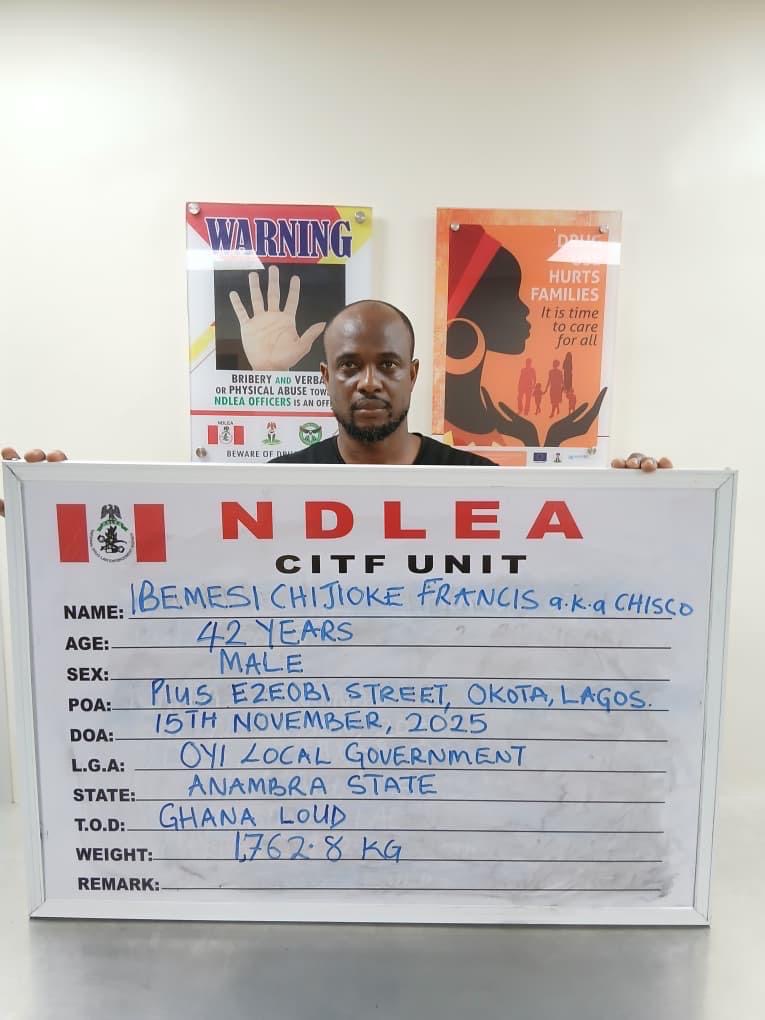 WARNING
BRIBERY AND VERBA
OR PHYSICAL ABUSE TOW
NDLEA OFFICERS IS AN OFF
NDLEA
BEWARE OF DR
DRUG
USE
HURTS
FAMILIES
It is time
to care
for all
NDLEA
CITF UNIT
NAME: IBEMESI CHIJIOKE FRANCIS a.k.a CHISCO
AGE: 42 YEARS
SEX: MALE
POA: PIUS EZEOBI STREET, OKOTA, LAGOS.
DOA: 15TH NOVEMBER, 2025
L.G.A: OYI LOCAL GOVERNMENT
STATE: ANAMBRA STATE
T.O.D: GHANA LOUD
WEIGHT: 1,762.8 KG
REMARK: